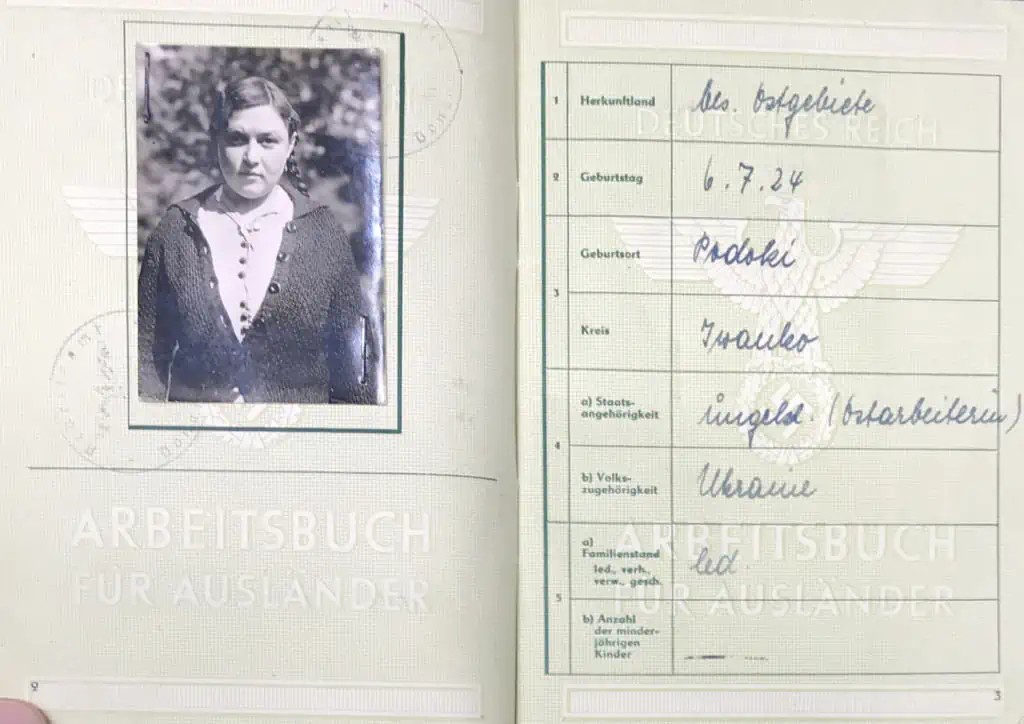 ARBEITSBUCH
FÜR AUSLÄNDER
2
DEUTSCHES REICH
1 Herkunftland bes. Ostgebiete
2 Geburtstag 6.7.24
3 Geburtsort Podoki
Kreis Iwanko
4 a) Staats-
angehörigkeit ungekl. (Ostarbeiterin)
b) Volks-
zugehörigkeit Ukraine
ARBEITSBUCH
FÜR AUSLÄNDER
5 a)
Familienstand led.
led., verh.,
verw., gesch.
b) Anzahl
der minder-
jährigen
Kinder
3